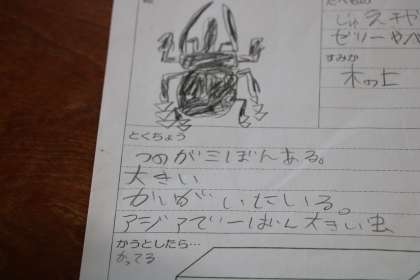 じゅえきや
ゼリーや
すみか
木の上
とくちょう
つのが三ぼんある。
大きい
かいがいにいる。
アジアで一ばん大きい虫
かうとしたら…
かってる